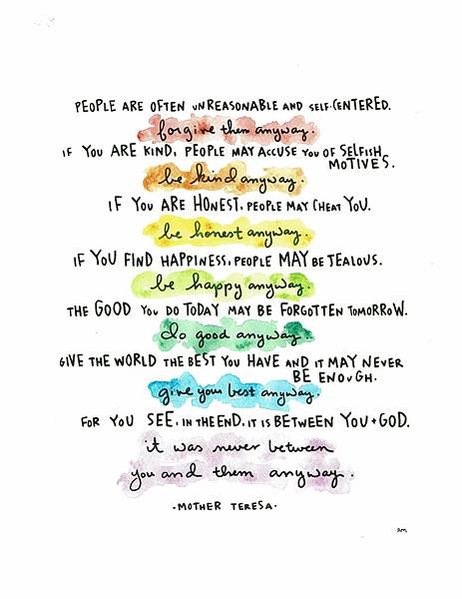 PEOPLE ARE OFTEN UNREASONABLE AND SELF-CENTERED.
forgive them anyway.
IF YOU ARE KIND, PEOPLE MAY ACCUSE YOU OF SELFISH
MOTIVES.
be kind anyway.
IF YOU ARE HONEST, PEOPLE MAY CHEAT YOU.
be honest anyway.
IF YOU FIND HAPPINESS, PEOPLE MAY BE JEALOUS.
be happy anyway.
THE GOOD YOU DO TODAY MAY BE FORGOTTEN TOMORROW.
do good anyway.
GIVE THE WORLD THE BEST YOU HAVE AND IT MAY NEVER
BE ENOUGH.
give your best anyway.
FOR YOU SEE, IN THE END, IT IS BETWEEN YOU + GOD.
it was never between
you and them anyway.
-MOTHER TERESA-